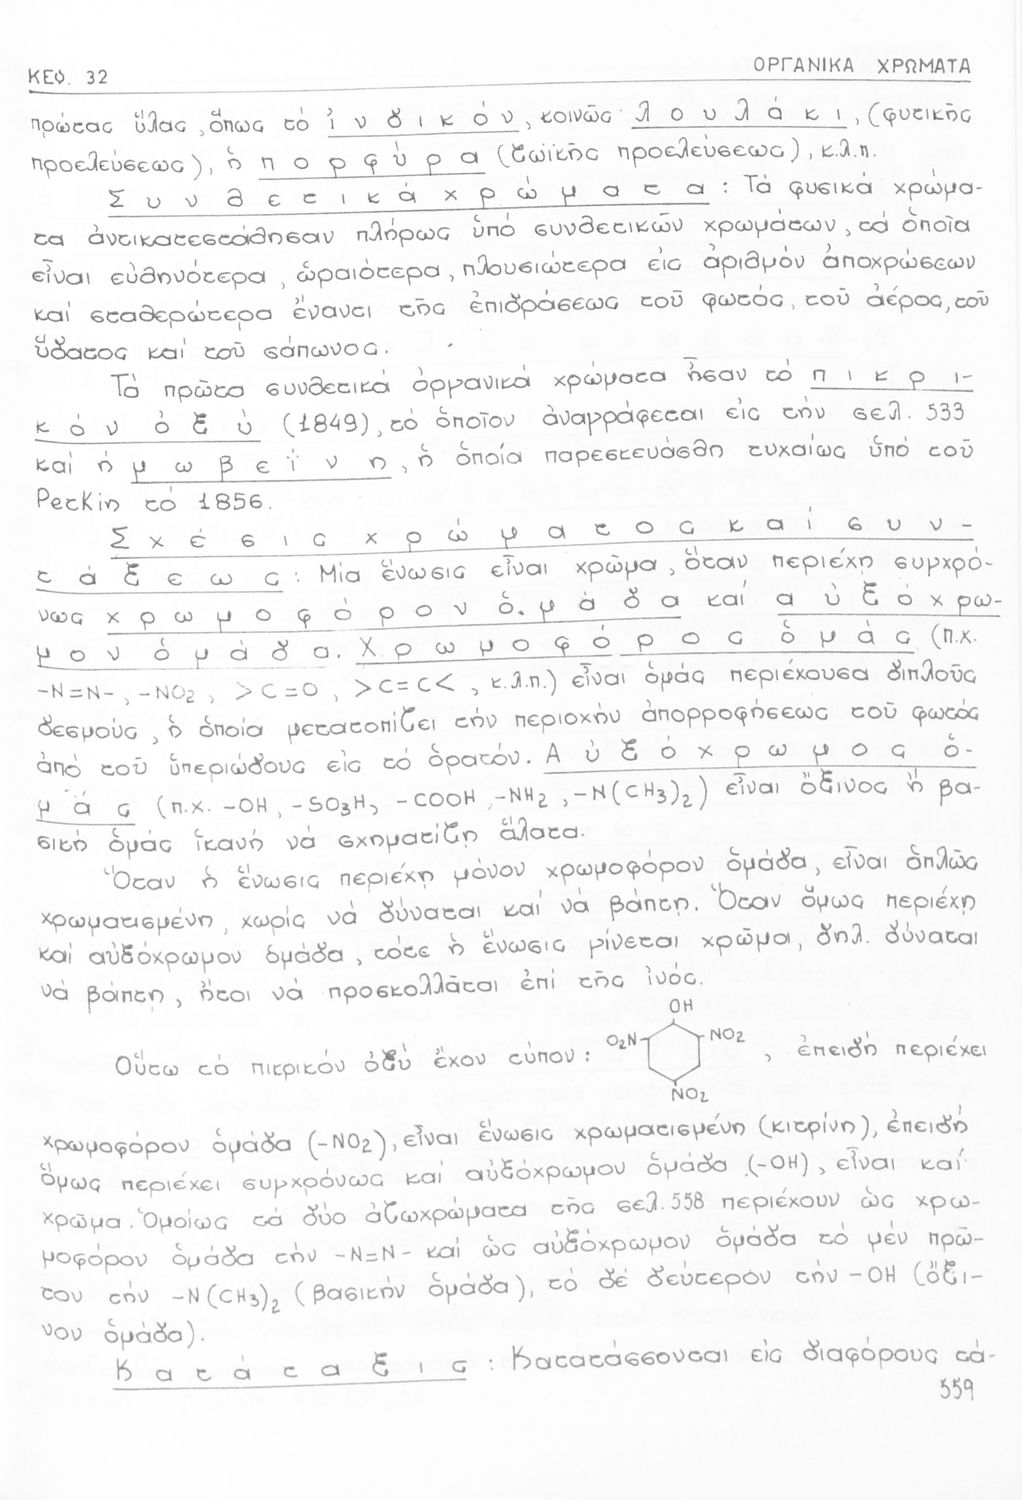 ΚΕΦ. 32
ΟΡΓΑΝΙΚΑ ΧΡΩΜΑΤΑ
πρώτας ὕλας, ὅπως τό ἰνδικόν, κοινῶς λουλάκι, (φυτικῆς
προελεύσεως), ἡ πορφύρα (ζωϊκῆς προελεύσεως), κ.λ.π.
Συνθετικά χρώματα: Τά φυσικά χρώμα-
τα ἀντικατεστάθησαν πλήρως ὑπό συνθετικῶν χρωμάτων, τά ὁποῖα
εἶναι εὐθηνότερα, ὡραιότερα, πλουσιώτερα εἰς ἀριθμόν ἀποχρώσεων
καί σταθερώτερα ἔναντι τῆς ἐπιδράσεως τοῦ φωτός, τοῦ ἀέρος, τοῦ
ὕδατος καί τοῦ σάπωνος.
Τά πρῶτα συνθετικά ὀργανικά χρώματα ἦσαν τό πικρι-
κόν ὀξύ (1849), τό ὁποῖον ἀναγράφεται εἰς τήν σελ. 533
καί ἡ μωβεΐνη, ἡ ὁποία παρεσκευάσθη τυχαίως ὑπό τοῦ
Perkin τό 1856.
Σχέσις χρώματος καί συν-
τάξεως: Μία ἕνωσις εἶναι χρῶμα, ὅταν περιέχη συγχρό-
νως χρωμοφόρον ὁμάδα καί αὐξόχρω-
μον ὁμάδα. Χρωμοφόρος ὁμάς (π.χ.
-N=N-, -NO2, >C=O, >C=C<, κ.λ.π.) εἶναι ὁμάς περιέχουσα διπλοῦς
δεσμούς, ἡ ὁποία μετατοπίζει τήν περιοχήν ἀπορροφήσεως τοῦ φωτός
ἀπό τοῦ ὑπεριώδους εἰς τό ὁρατόν. Αὐξόχρωμος ὁ-
μάς (π.χ. -OH, -SO3H, -COOH, -NH2, -N(CH3)2) εἶναι ὄξινος ἤ βα-
σική ὁμάς ἱκανή νά σχηματίζη ἅλατα.
Ὅταν ἡ ἕνωσις περιέχη μόνον χρωμοφόρον ὁμάδα, εἶναι ἁπλῶς
χρωματισμένη, χωρίς νά δύναται καί νά βάπτη. Ὅταν ὅμως περιέχη
καί αὐξόχρωμον ὁμάδα, τότε ἡ ἕνωσις γίνεται χρῶμα, δηλ. δύναται
νά βάπτη, ἤτοι νά προσκολλᾶται ἐπί τῆς ἰνός.
OH
Οὕτω τό πικρικόν ὀξύ ἔχον τύπον: O2N NO2, ἐπειδή περιέχει
NO2
χρωμοφόρον ὁμάδα (-NO2), εἶναι ἕνωσις χρωματισμένη (κιτρίνη), ἐπειδή
ὅμως περιέχει συγχρόνως καί αὐξόχρωμον ὁμάδα (-OH), εἶναι καί
χρῶμα. Ὁμοίως τά δύο ἀζωχρώματα τῆς σελ. 558 περιέχουν ὡς χρω-
μοφόρον ὁμάδα τήν -N=N- καί ὡς αὐξόχρωμον ὁμάδα τό μέν πρῶ-
τον τήν -N(CH3)2 (βασικήν ὁμάδα), τό δέ δεύτερον τήν -OH (ὄξι-
νον ὁμάδα).
Κατάταξις: Κατατάσσονται εἰς διαφόρους τά-
559